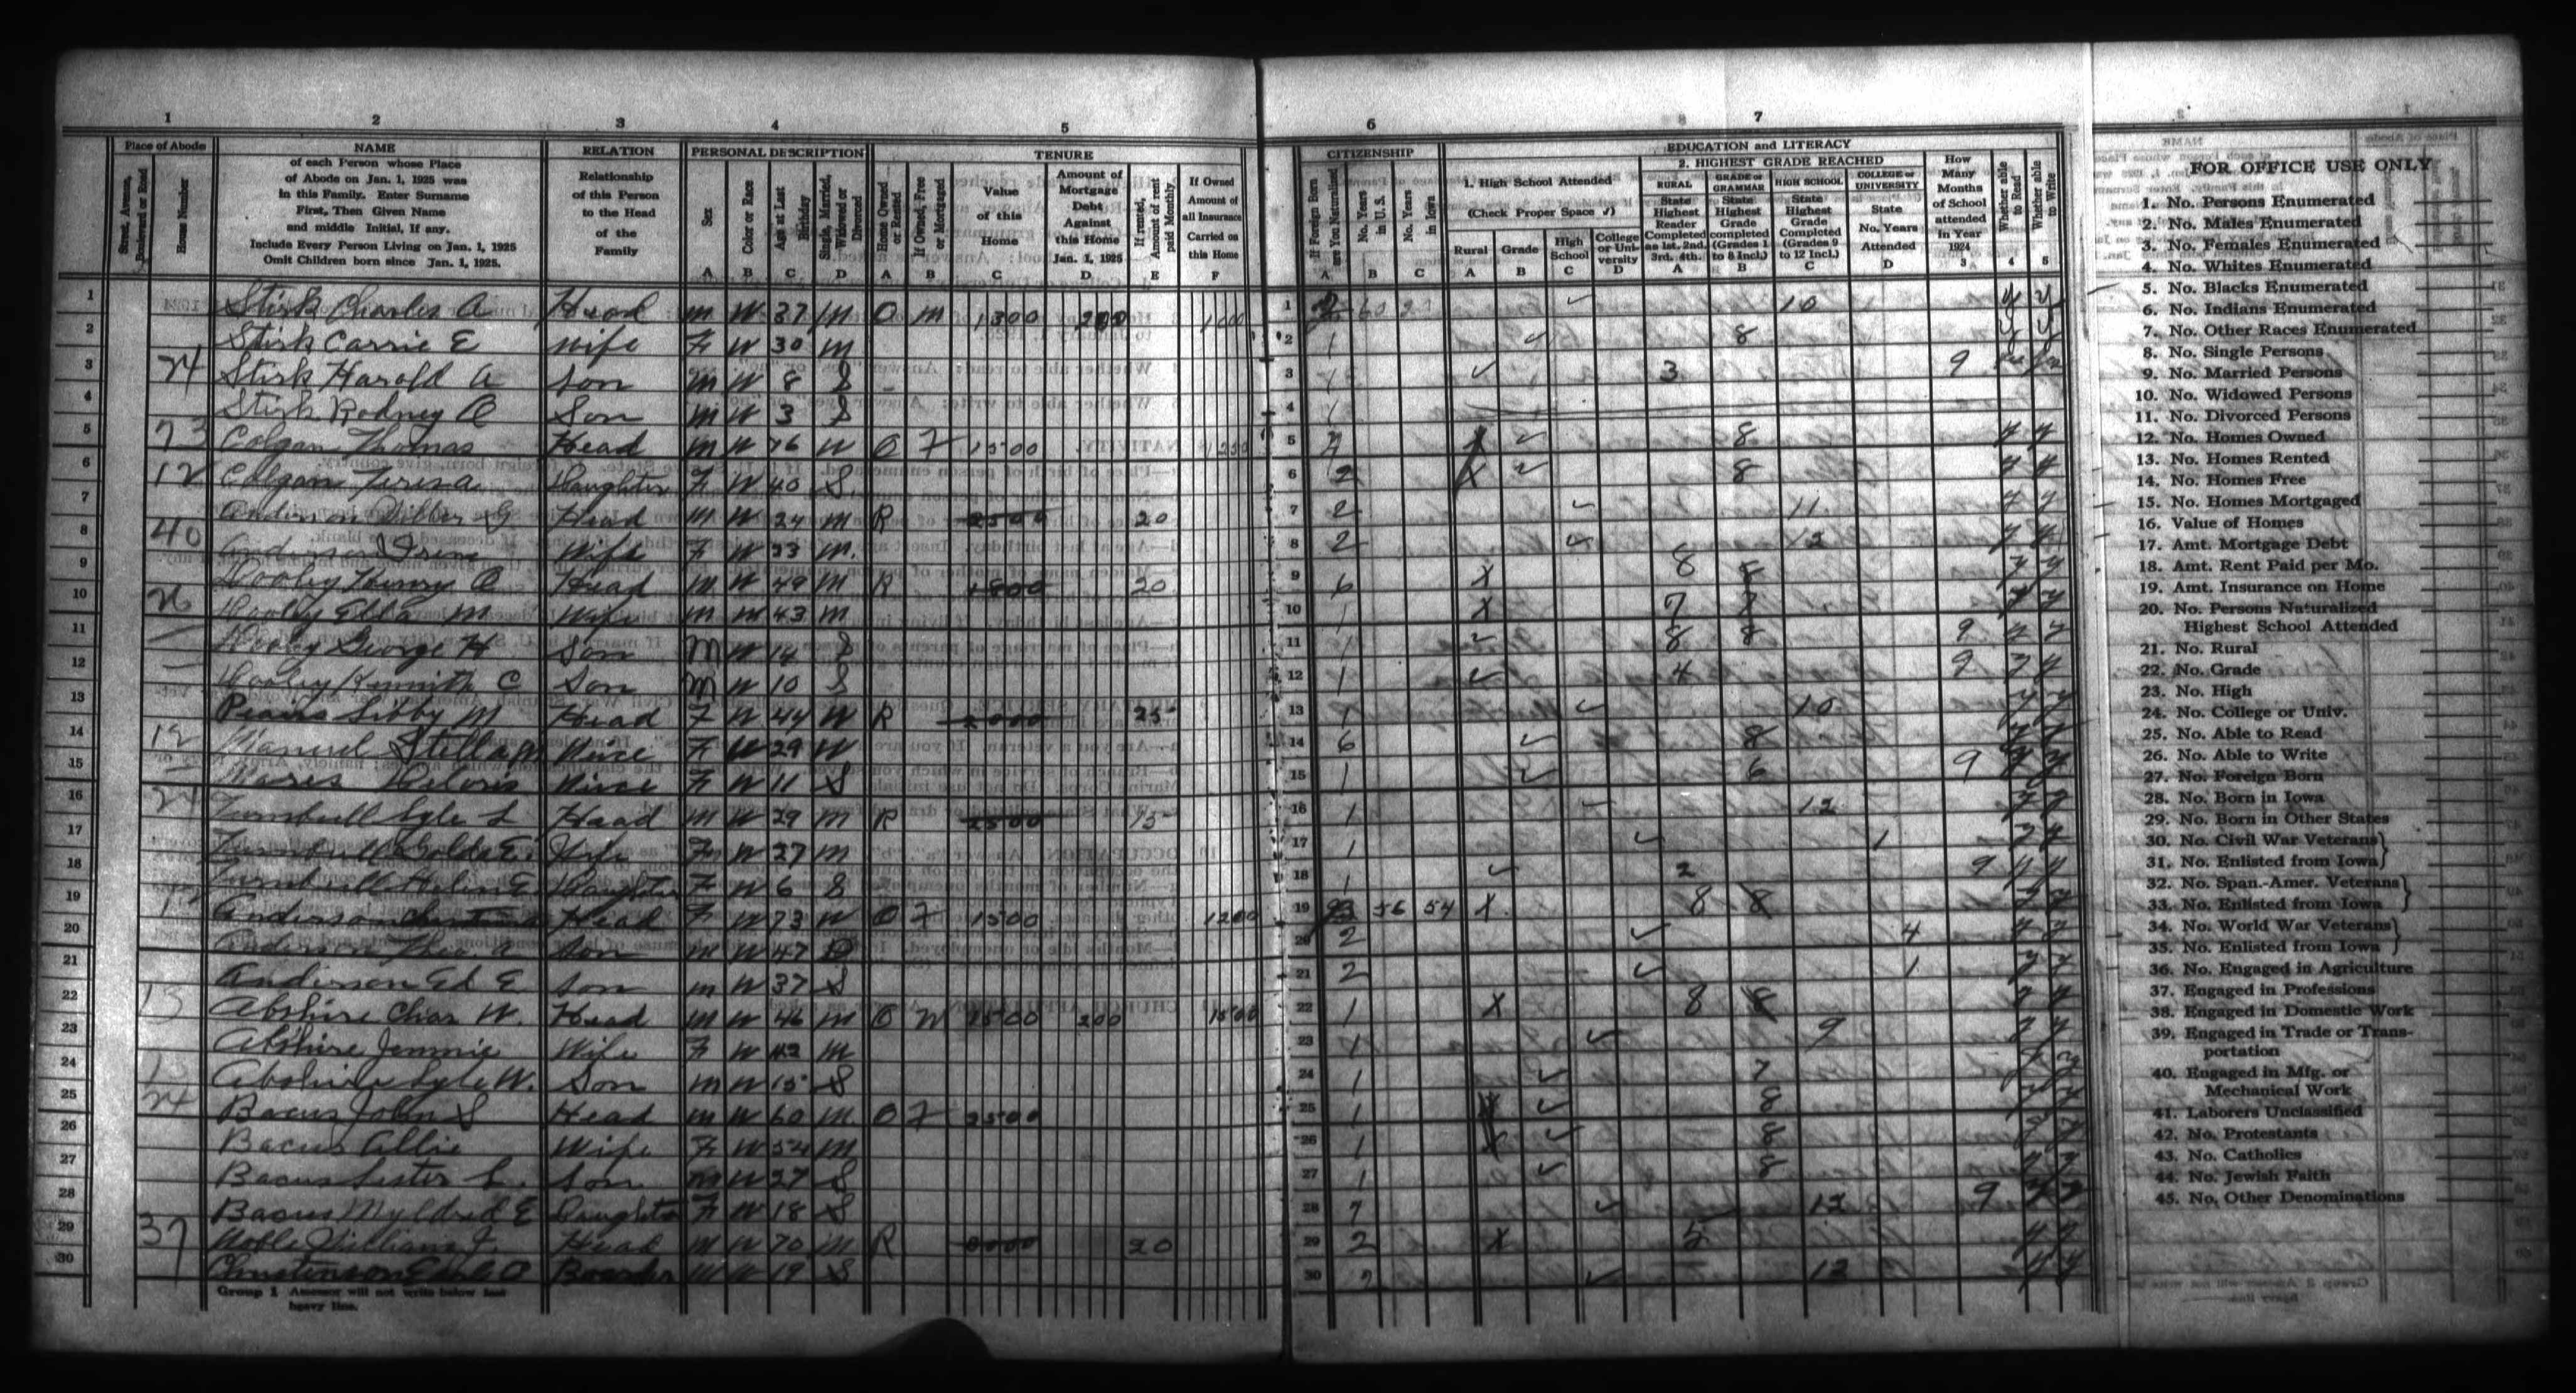 1 2 3 4 5 6 7
Place of Abode NAME RELATION PERSONAL DESCRIPTION TENURE CITIZENSHIP EDUCATION and LITERACY
Street, Avenue, Boulevard or Road
House Number
of each Person whose Place
of Abode on Jan. 1, 1925 was
in this Family. Enter Surname
First, Then Given Name
and middle Initial, If any.
Include Every Person Living on Jan. 1, 1925
Omit Children born since Jan. 1, 1925.
Relationship
of this Person
to the Head
of the
Family
Sex A
Color or Race B
Age at Last Birthday C
Single, Married, Widowed or Divorced D
Home Owned or Rented A
If Owned, Free or Mortgaged B
Value of this Home C
Amount of Mortgage Debt Against this Home Jan. 1, 1925 D
If rented, Amount of rent paid Monthly E
If Owned Amount of all Insurance Carried on this Home F
If Foreign Born are You Naturalized A
No. Years in U.S. B
No. Years in Iowa C
1. High School Attended
(Check Proper Space ✓)
Rural A
Grade B
High School C
College or University D
2. HIGHEST GRADE REACHED
RURAL State Highest Reader Completed as 1st. 2nd. 3rd. 4th. A
GRADE or GRAMMAR State Highest Grade completed (Grades 1 to 8 Incl.) B
HIGH SCHOOL State Highest Grade Completed (Grades 9 to 12 Incl.) C
COLLEGE or UNIVERSITY State No. Years Attended D
How Many Months of School attended in Year 1924 3
Whether able to Read 4
Whether able to Write 5
1 Stirk Charles A Head M W 37 M O M 1300 200 1 ✓ 10 y y
2 Stirk Carrie E Wife F W 30 M 2 1 ✓ 8 y y
3 Stirk Harold A Son M W 8 S 3 1 ✓ 3 9
4 Stirk Rodney Son M W 3 S 4 1
5 73 Colgan Thomas Head M W 76 W O F 1500 5 ✓ 8 y y
6 12 Colgan Teresa Daughter F W 40 S 6 2 X ✓ 8 y y
7 Anderson G Head M W 24 M R 2500 20 7 2 ✓ 11 y y
8 40 Anderson Irene Wife F W 23 M 8 2 ✓ 12 y y
9 Henry Head M W 49 M R 1800 20 9 6 X 8 8 y y
10 26 Ella M Wife M 43 M 10 1 X 7 7 y y
11 George H Son M W 14 S 11 1 ✓ 8 8 9 y y
12 Kennith C Son M W 10 S 12 1 ✓ 4 9 y y
13 Libby M Head F W 44 W R 2000 25 13 1 ✓ 10 y y
14 12 Manuel Stella M Niece F W 29 W 14 6 ✓ 8 y y
15 Deloris Niece F W 11 S 15 1 ✓ 6 9 y y
16 24 Turnbull Lyle L Head M W 29 M R 2500 15 16 1 ✓ 12 y y
17 Turnbull Golda E. Wife F W 27 M 17 1 ✓ 1 y y
18 Turnbull Helen E. Daughter F W 6 S 18 1 ✓ 2 9 y y
19 Anderson Head F W 73 W O F 1500 1200 19 56 54 X 8 8 y y
20 Anderson Theo. A Son M W 47 D 20 2 ✓ 4 y y
21 Anderson Ed E Son M W 37 S 21 2 ✓ 1 y y
22 13 Abshire Chas W. Head M W 46 M O M 1500 200 1500 22 1 X 8 8 y y
23 Abshire Jennie Wife F W 42 M 23 1 ✓ 9 y y
24 Abshire Lyle W. Son M W 15 S 24 1 ✓ 7 y y
25 24 Bacus John S Head M W 60 M O F 2500 25 1 ✓ 8 y y
26 Bacus Allie Wife F W 54 M 26 1 X ✓ 8 y y
27 Bacus Lester L. Son M W 27 S 27 1 ✓ 8 y y
28 Bacus Myldred E Daughter F W 18 S 28 ✓ 12 9 y y
29 37 Noble William J Head M W 70 M R 20 29 2 X 5 y y
30 Christenson Boarder M W 19 S 30 ✓ 12 y y
Group 1 Assessor will not write below last
heavy line.
FOR OFFICE USE ONLY
1. No. Persons Enumerated
2. No. Males Enumerated
3. No. Females Enumerated
4. No. Whites Enumerated
5. No. Blacks Enumerated
6. No. Indians Enumerated
7. No. Other Races Enumerated
8. No. Single Persons
9. No. Married Persons
10. No. Widowed Persons
11. No. Divorced Persons
12. No. Homes Owned
13. No. Homes Rented
14. No. Homes Free
15. No. Homes Mortgaged
16. Value of Homes
17. Amt. Mortgage Debt
18. Amt. Rent Paid per Mo.
19. Amt. Insurance on Home
20. No. Persons Naturalized
Highest School Attended
21. No. Rural
22. No. Grade
23. No. High
24. No. College or Univ.
25. No. Able to Read
26. No. Able to Write
27. No. Foreign Born
28. No. Born in Iowa
29. No. Born in Other States
30. No. Civil War Veterans
31. No. Enlisted from Iowa
32. No. Span.-Amer. Veterans
33. No. Enlisted from Iowa
34. No. World War Veterans
35. No. Enlisted from Iowa
36. No. Engaged in Agriculture
37. Engaged in Professions
38. Engaged in Domestic Work
39. Engaged in Trade or Trans-
portation
40. Engaged in Mfg. or
Mechanical Work
41. Laborers Unclassified
42. No. Protestants
43. No. Catholics
44. No. Jewish Faith
45. No. Other Denominations